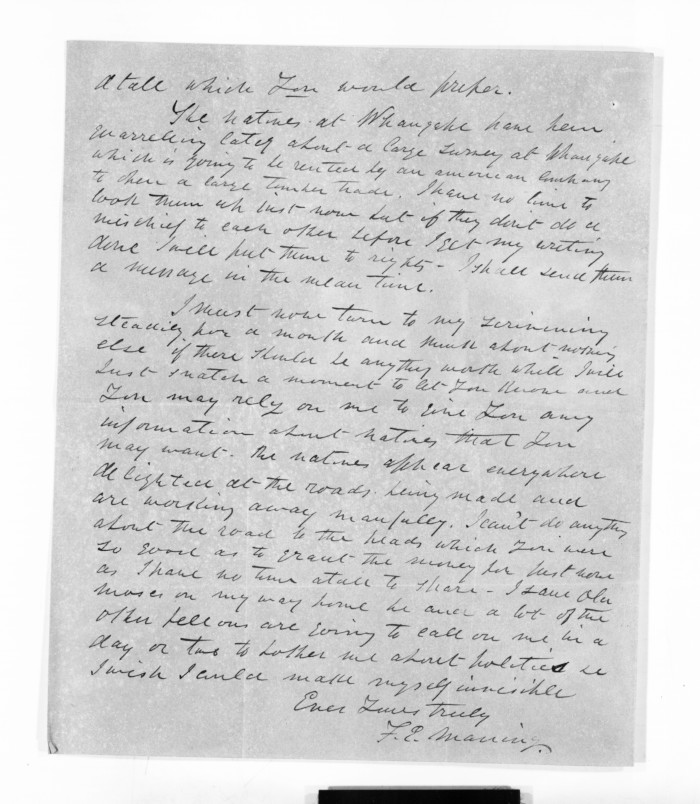 atall which You would prefer.
The natives at Whangape have been
quarreling lately about a large survey at Whangape
which is going to be rented by an american company
to open a large timber trade. I have no time to
look them up just now but if they dont do a
mischief to each other before I get my writing
done I will put them to rights - I shall send them
a message in the mean time.
I must now turn to my scrivening
steadily for a month and think about nothing
else if there should be anything worth while I will
Just snatch a moment to let You Know and
You may rely on me to give You any
information about natives that You
may want. The natives appear everywhere
delighted at the roads being made and
are working away manfully. I can't do anything
about the road to the heads which You were
so good as to grant the money for just now
as I have no time atall to spare - I saw Old
Moses on my way home he and a lot of the
other fellows are going to call on me in a
day or two to bother me about politics
I wish I could make myself invisible
Ever Yours truly
F. E. Maning.